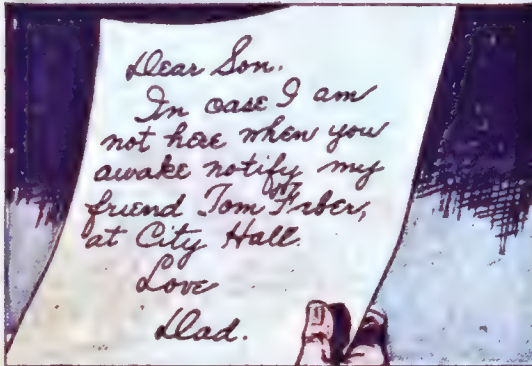 Dear Son.
In case I am
not here when you
awake notify my
friend Tom Faber,
at City Hall.
Love
Dad.